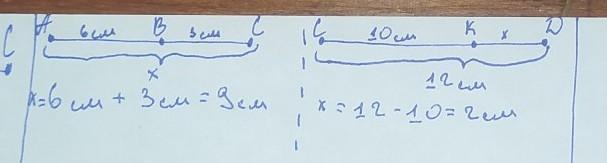 A 6см B 3см C
x
x=6см + 3см = 9см
C
C 10см K x D
12см
x = 12 - 10 = 2см